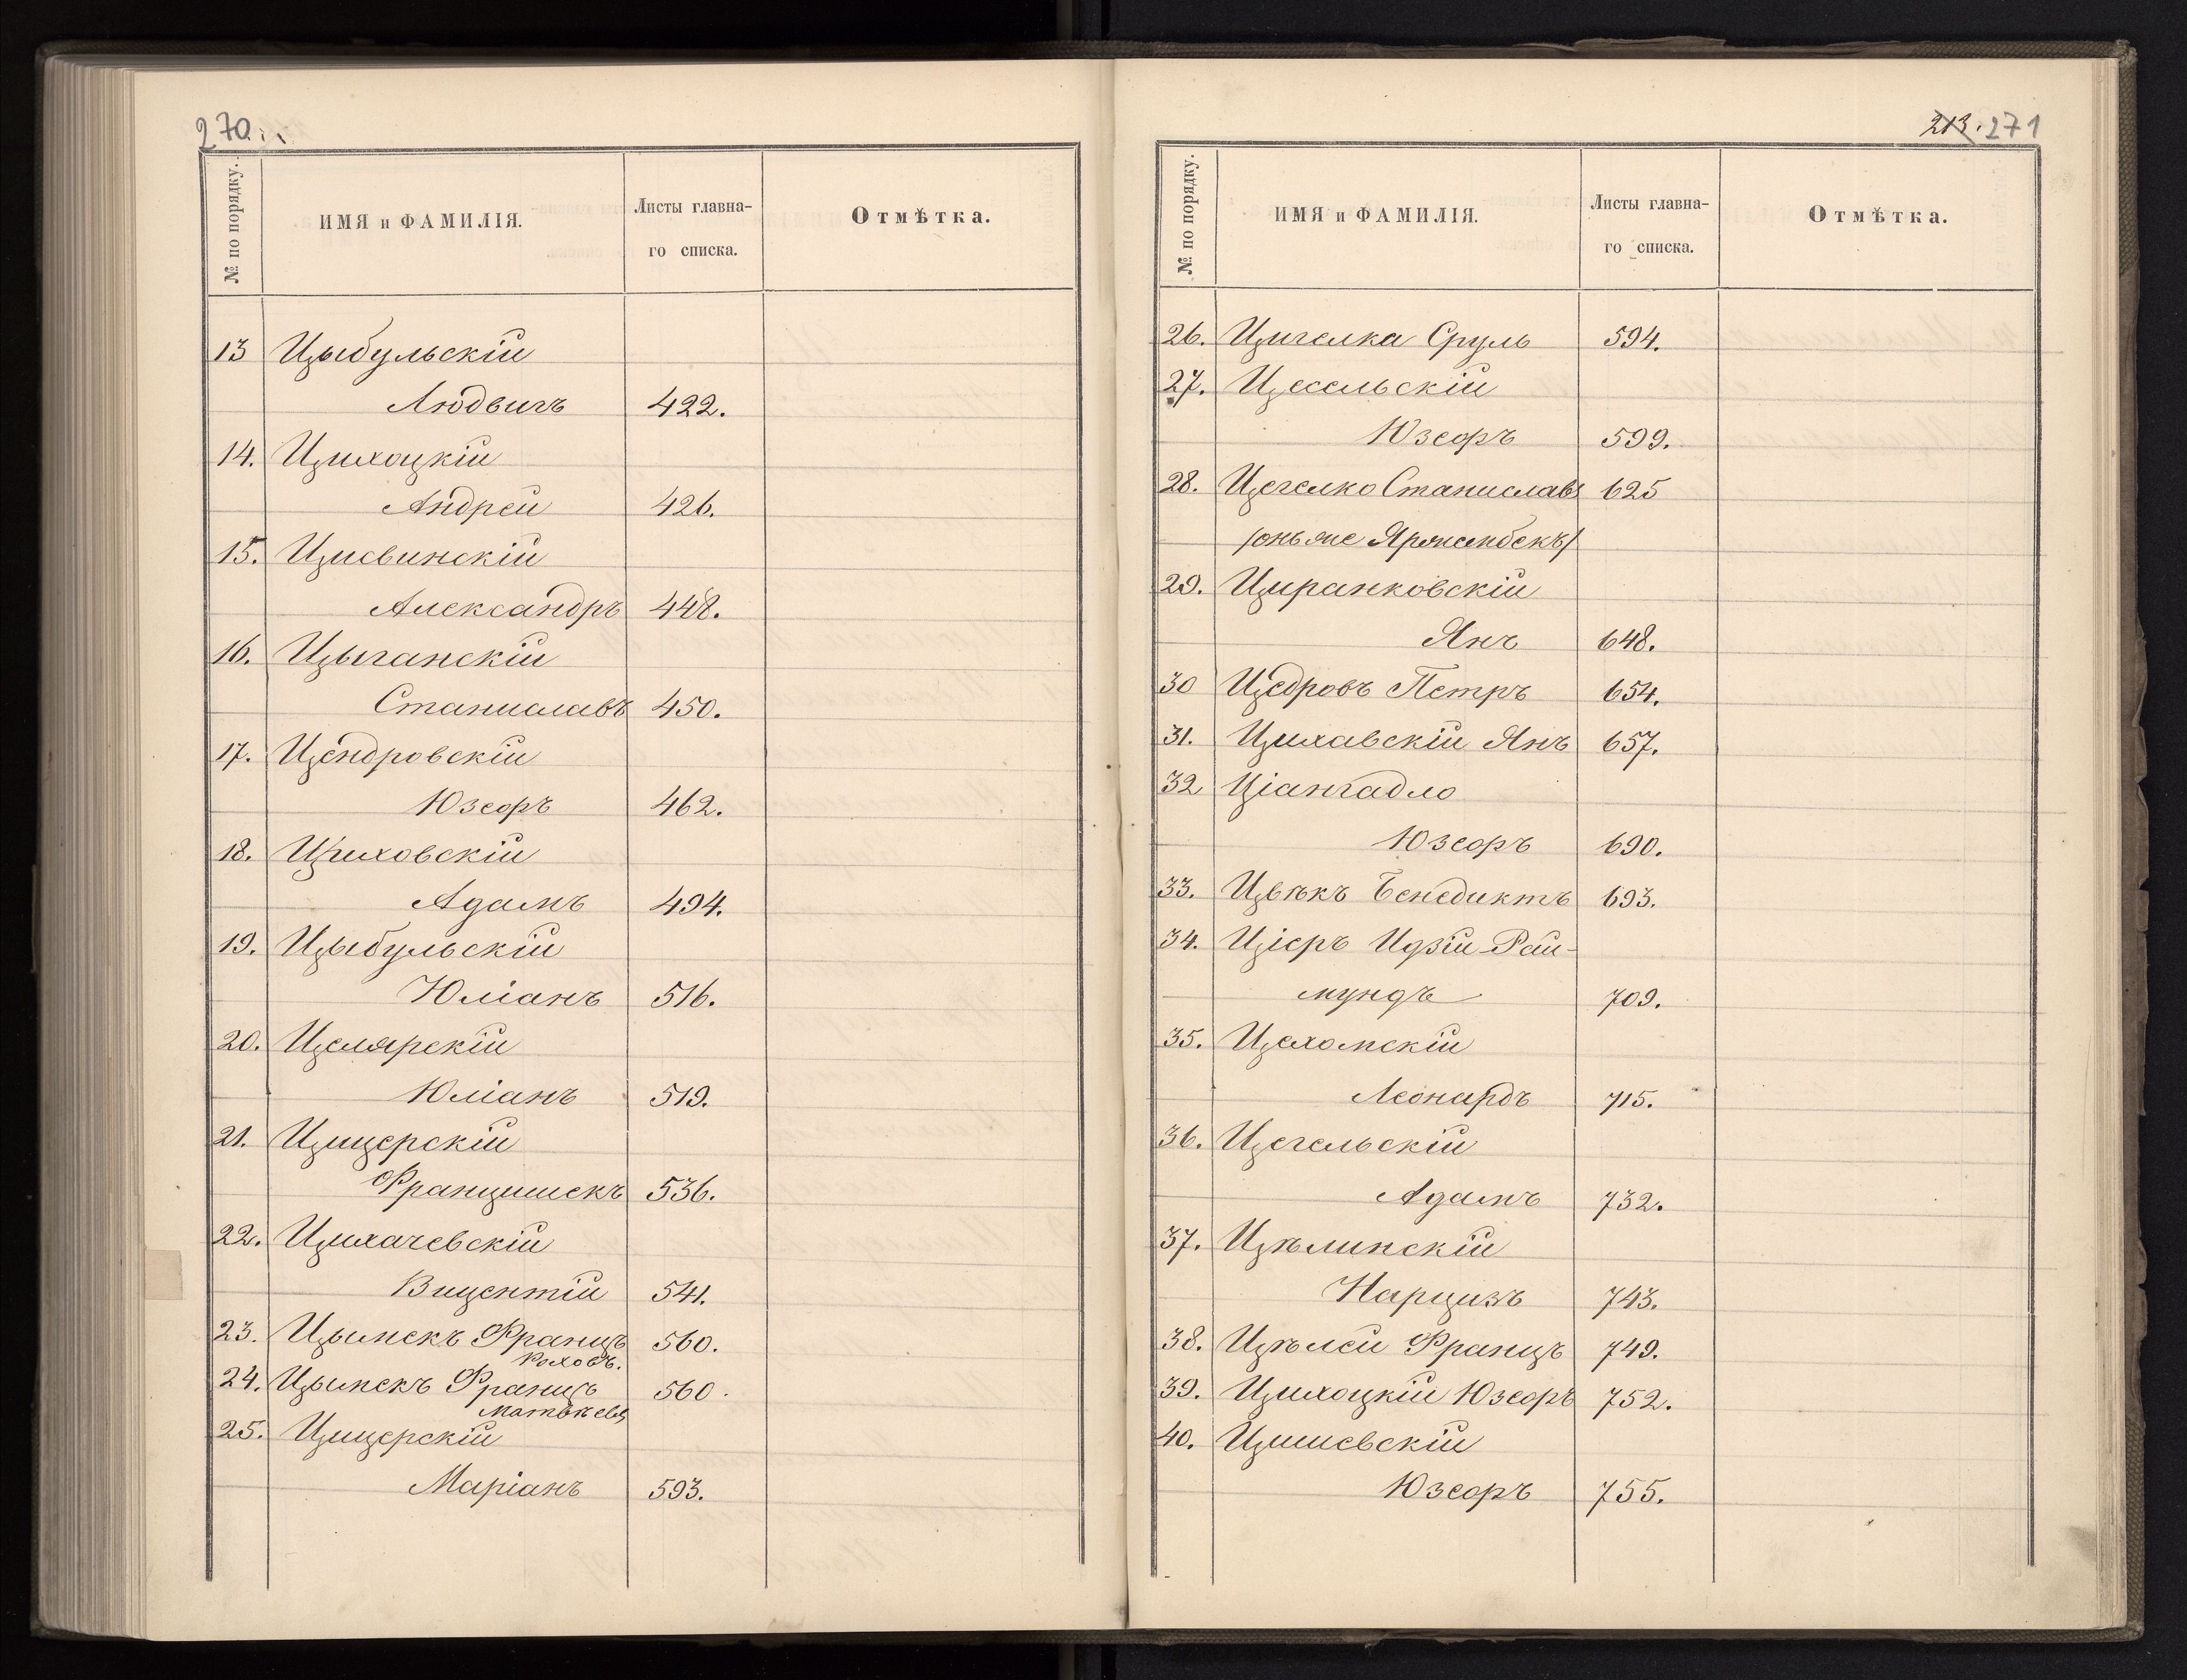 270.
№ по порядку.
ИМЯ и ФАМИЛІЯ.
Листы главна-
го списка.
Отмѣтка.
13 Цыбульскій
Людвигъ 422.
14. Цихоцкій
Андрей 426.
15. Цисвинскій
Александръ 448.
16. Цыганскій
Станиславъ 450.
17. Цендровскій
Юзефъ 462.
18. Циховскій
Адамъ 494.
19. Цыбульскій
Юліанъ 516.
20. Целярскій
Юліанъ 519.
21. Цицерскій
Францишекъ 536.
22. Цихачевскій
Вицентій 541.
23. Цымекъ Францъ 560.
Роховъ.
24. Цымекъ Францъ 560.
Матвѣевъ
25. Цицерскій
Маріанъ 593.
213. 271
№ по порядку.
ИМЯ и ФАМИЛІЯ.
Листы главна-
го списка.
Отмѣтка.
26. Цигелка Сруль 594.
27. Цесельскій
Юзефъ 599.
28. Цегелко Станиславъ 625
/онъ же
29. Циранковскій
Янъ 648.
30 Цедровъ Петръ 654.
31. Цихавскій Янъ 657.
32 Ціангадло
Юзефъ 690.
33. Цвѣкъ Бенедиктъ 693.
34. Ціеръ Идзій-Рай-
мундъ 709.
35. Цехомскій
Леонардъ 715.
36. Цегельскій
Адамъ 732.
37. Цѣлинскій
Нарцизъ 743.
38. Цѣлей Францъ 749.
39. Цихоцкій Юзефъ 752.
40. Цишевскій
Юзефъ 755.